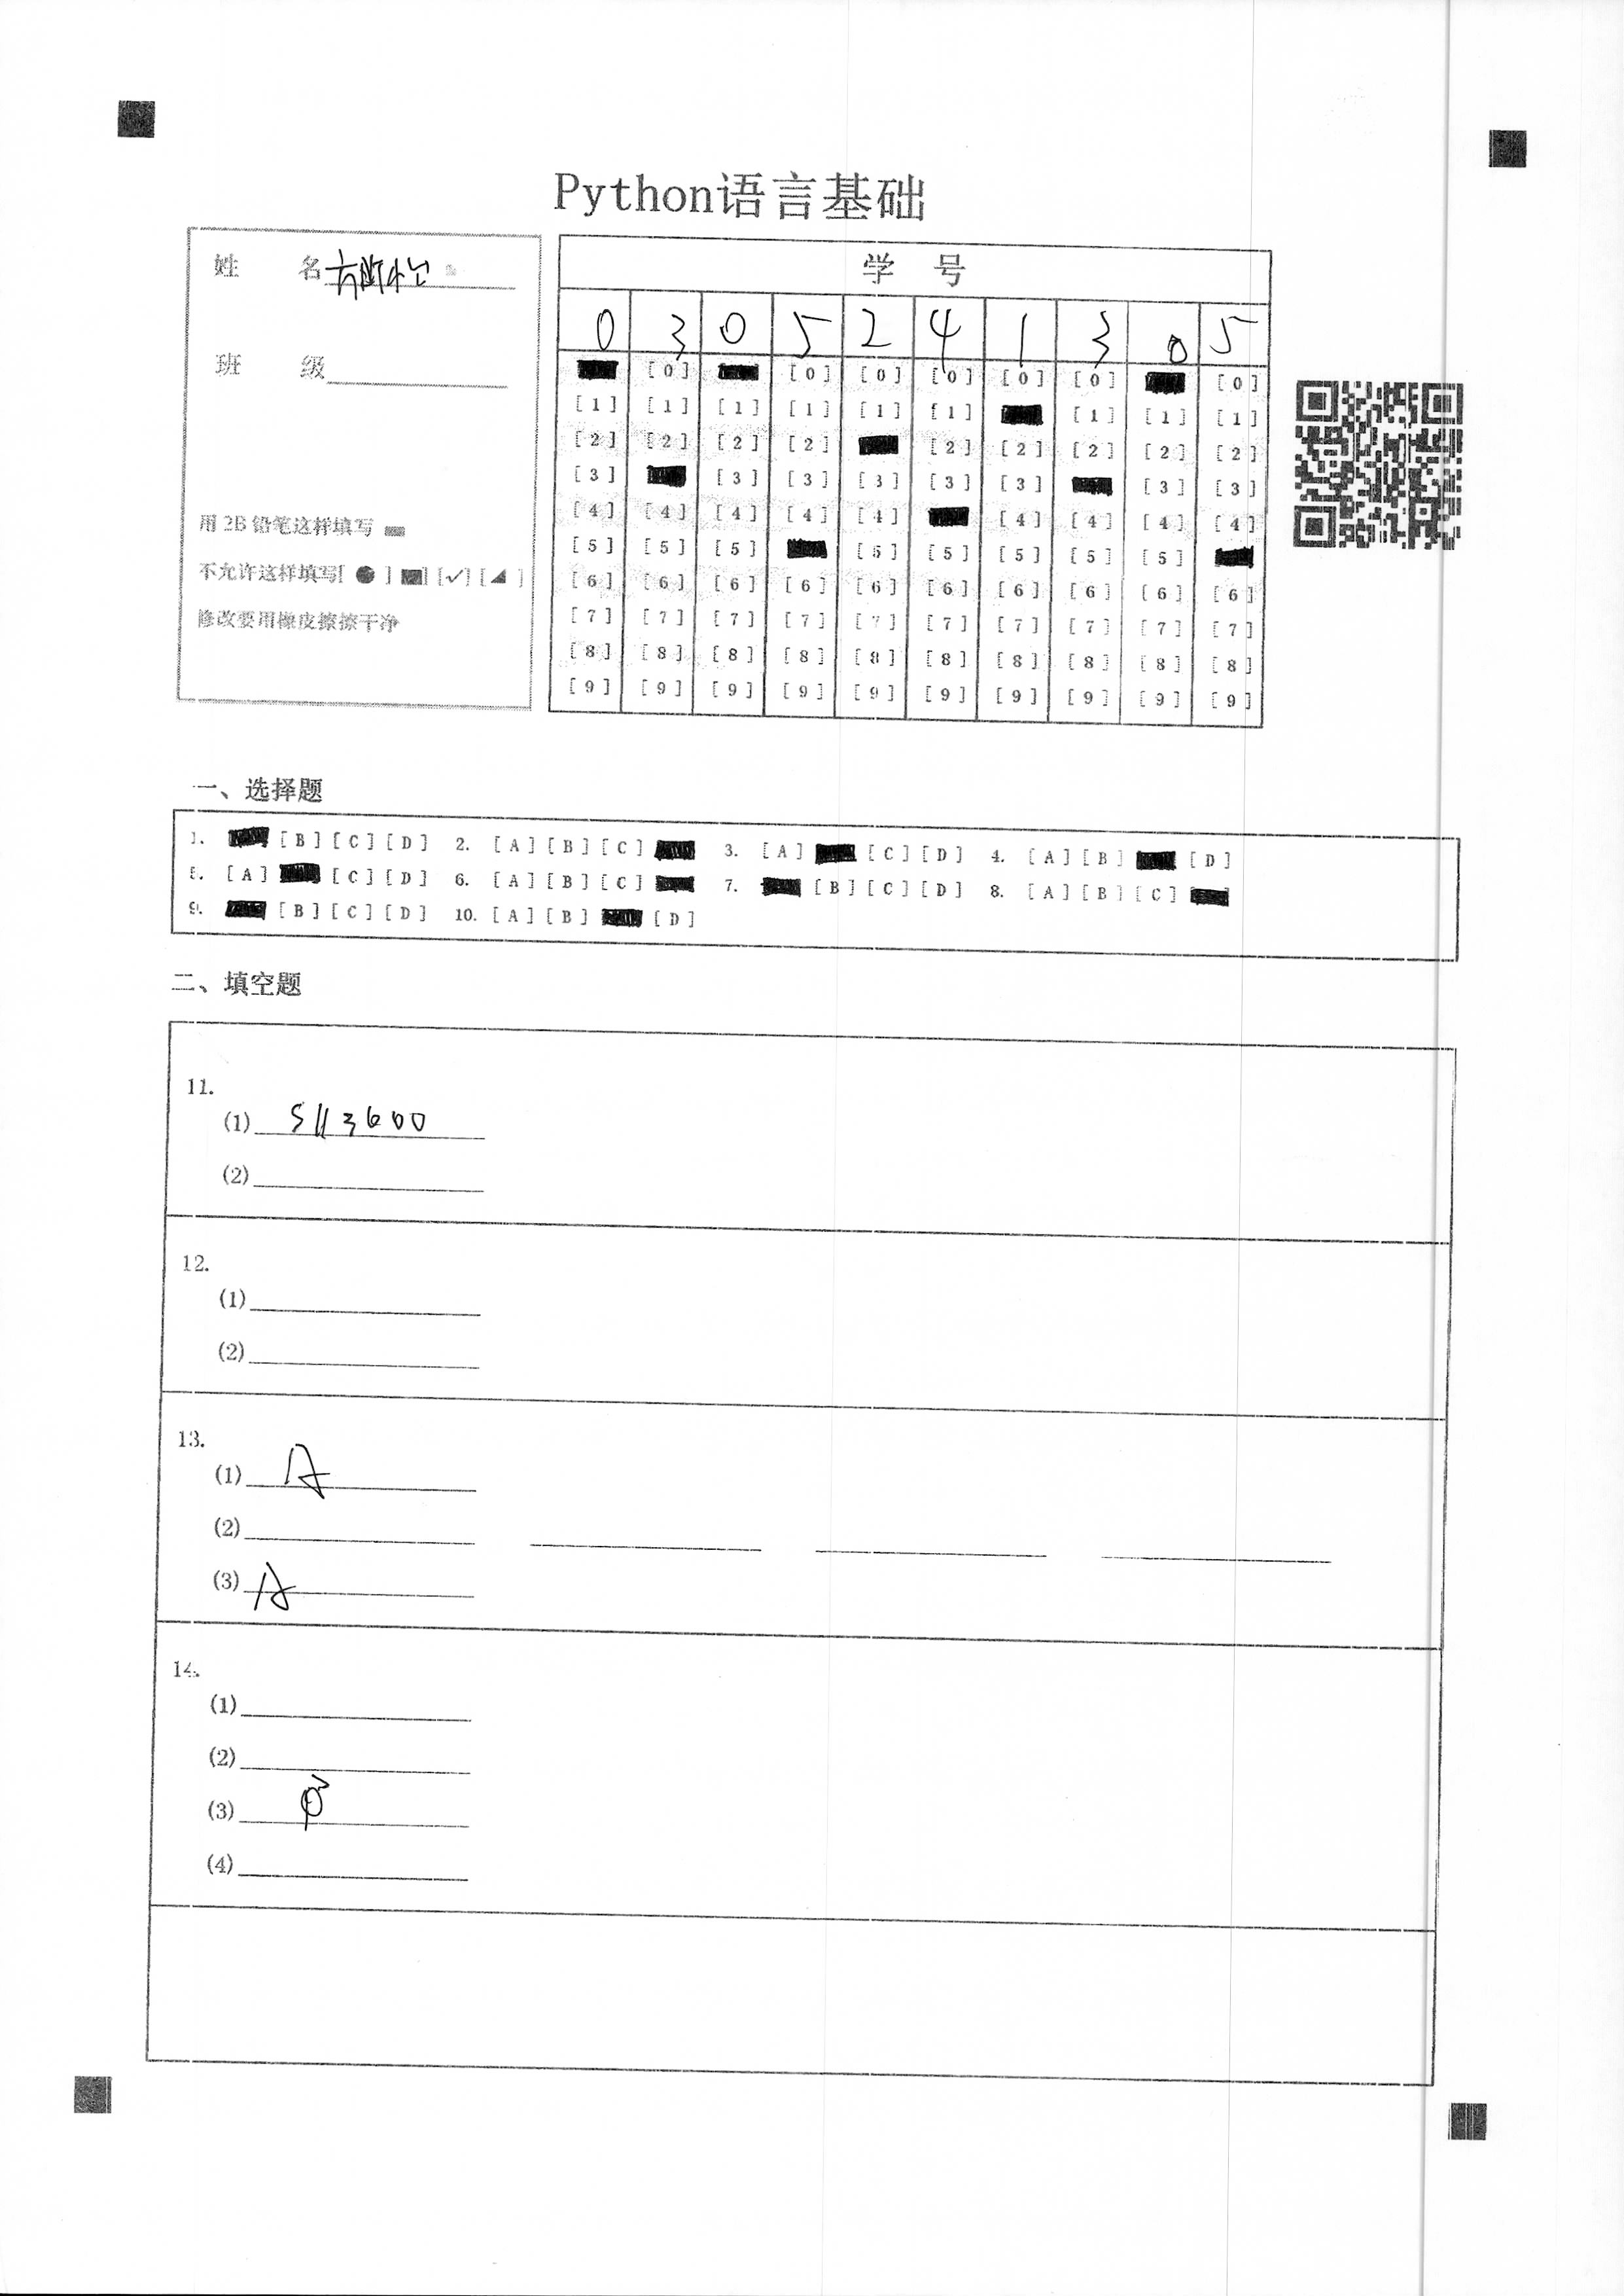 Python语言基础
姓 名
班 级
用 2B 铅笔这样填写
不允许这样填写[ ● ] [■] [✓] [◢ ]
修改要用橡皮擦擦干净
学 号
0 3 0 5 2 4 1 3 0 5
[0] [0] [0] [0] [0] [0] [0]
[1] [1] [1] [1] [1] [1] [1] [1] [1]
[2] [2] [2] [2] [2] [2] [2] [2] [2]
[3] [3] [3] [3] [3] [3] [3] [3]
[4] [4] [4] [4] [4] [4] [4] [4] [4]
[5] [5] [5] [5] [5] [5] [5] [5]
[6] [6] [6] [6] [6] [6] [6] [6] [6] [6]
[7] [7] [7] [7] [7] [7] [7] [7] [7] [7]
[8] [8] [8] [8] [8] [8] [8] [8] [8] [8]
[9] [9] [9] [9] [9] [9] [9] [9] [9] [9]
一、选择题
1. [B] [C] [D] 2. [A] [B] [C] 3. [A] [C] [D] 4. [A] [B] [D]
5. [A] [C] [D] 6. [A] [B] [C] 7. [B] [C] [D] 8. [A] [B] [C]
9. [B] [C] [D] 10. [A] [B] [D]
二、填空题
11.
(1) S//3600
(2)
12.
(1)
(2)
13.
(1) A
(2)
(3) A
14.
(1)
(2)
(3)
(4)